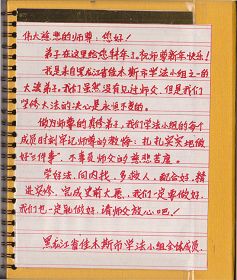 伟大慈悲的师尊，您好！
弟子在这里给您拜年了。祝师尊新年快乐！
我是来自黑龙江省佳木斯市学法小组之一的
大法弟子，我们虽然没有见过师父，但是我们
学修大法的决心是永恒不变的。
做为师尊的真修弟子，我们学法小组的每个
成员时刻牢记师尊的教悔：扎扎实实地做
好“三件事”，不辜负师父的慈悲苦度。
学好法，向内找，多救人，配合好，精
进实修，完成史前大愿，我们一定要做好，
我们也一定能做好，请师父放心吧！
黑龙江省佳木斯市学法小组全体成员